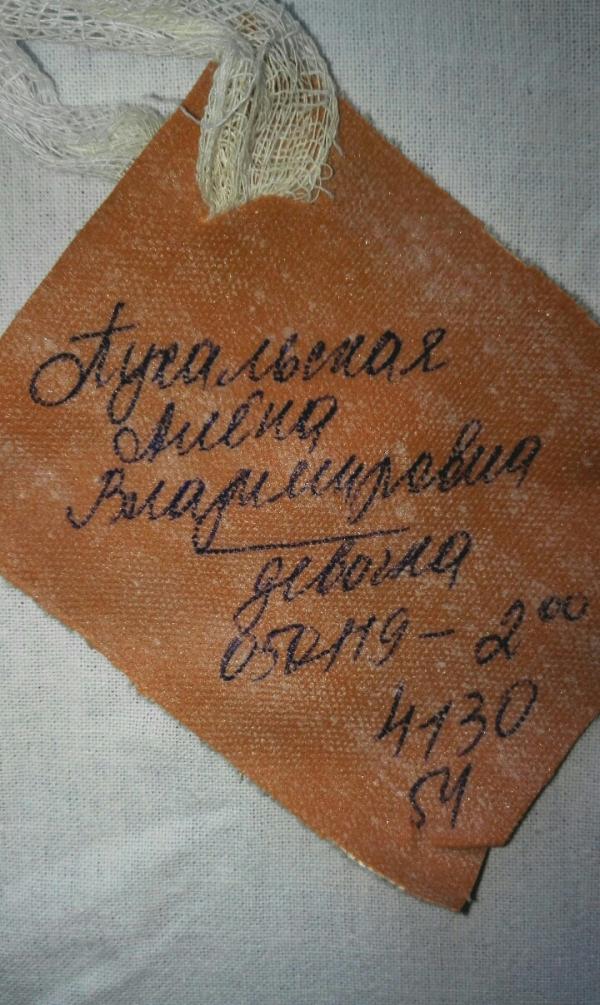 Пухальская
Алёна
Владимировна
девочка
050119 – 2⁰⁰
4130
54